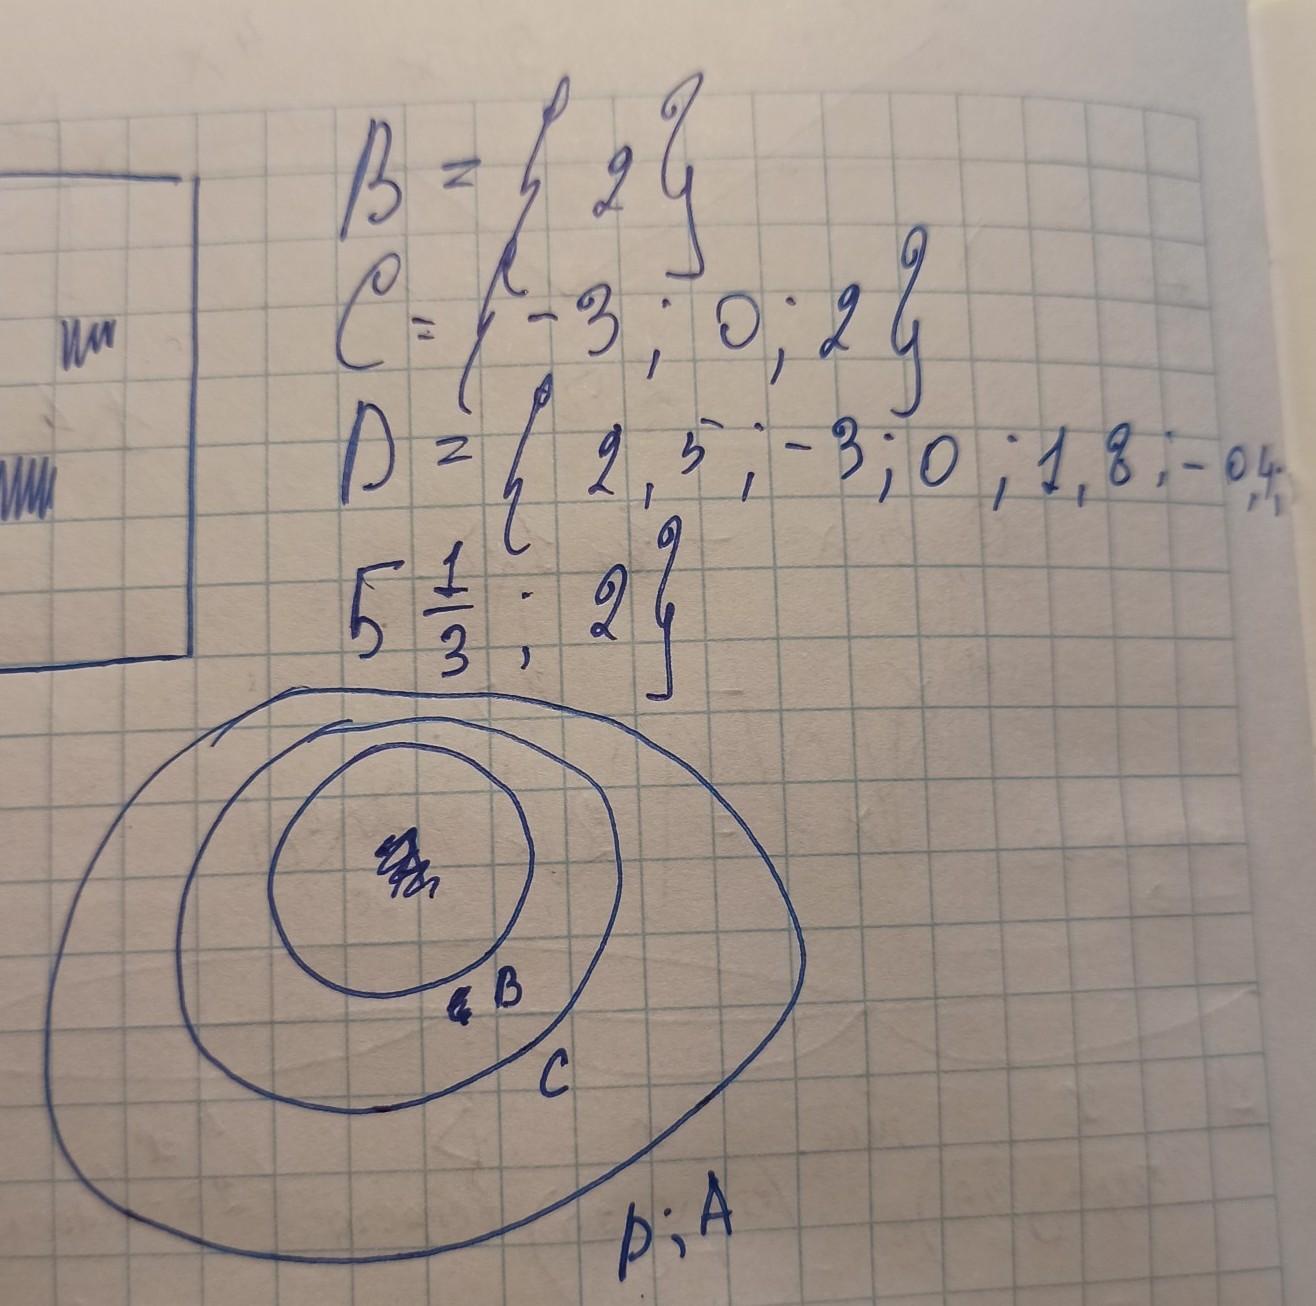 B = { 2 }
C = { -3 ; 0 ; 2 }
D = { 2,5 ; -3 ; 0 ; 1,8 ; -0,4;
5 1/3 ; 2 }
B
C
D ; A